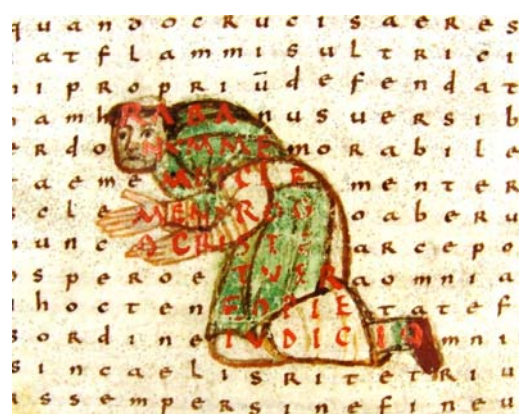 quandocrucisaeres
atflammisultrici
nipropriūdefendat
amhRABAnusuersib
erdoNUMMEmorabile
taemeMETCLEmenter
scleMENSROGoaberu
nuncACHRISTEarcepo
osperoeTUERaomnia
hoctenEOPIEtatef
sordineIUDICIOmni
sincaelisritetriu
ssempersinefineu